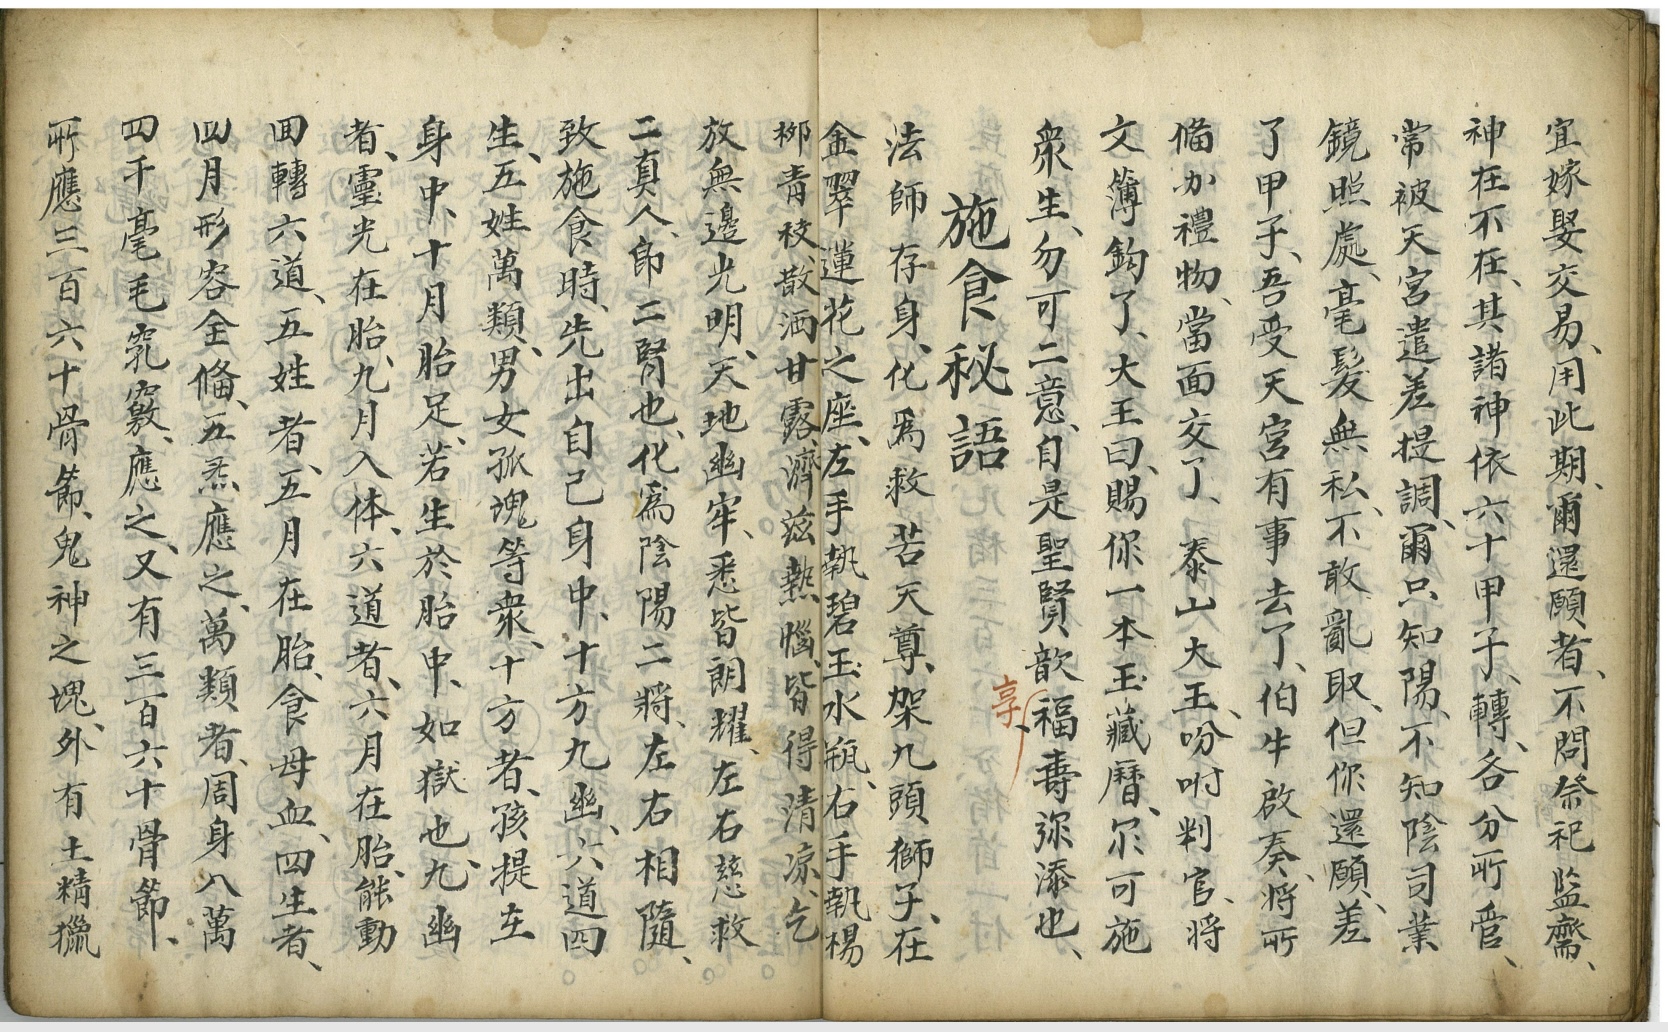 宜嫁娶交易、用此期、爾還願者、不問祭祀監齋、
神在不在、其諸神依六十甲子、轉、各分所管、
常被天宮遣差提調、爾只知陽、不知陰司業
鏡照處、毫髮無私、不敢亂取、但你還願、差
了甲子、吾受天宮有事去了、伯牛啟奏、將所
俻办禮物、當面交了、泰山大王、吩咐判官、將
文簿鈎了、大王曰、賜你一本玉藏曆、尔可施
衆生、勿可二意、自是聖賢歆福壽弥添也、
享
施食秘語
法師存身、化爲救苦天尊、架九頭獅子、在
金翠蓮花之座、左手執碧玉水瓶、右手執楊
柳青枝、散洒甘露、濟兹熱惱、皆得清凉、乞
放無邊光明、天地幽牢、悉皆朗耀、左右慈救
二真人、即二腎也、化爲陰陽二將、左右相隨、
致施食時、先出自己身中、十方九幽、六道四
生、五姓萬類、男女孤魂等衆、十方者、孩提在
身中、十月胎足、若生於胎中、如獄也、九幽
者、靈光在胎、九月入体、六道者、六月在胎、能動
回轉六道、五姓者、五月在胎、食母血、四生者、
四月形容全俻、五炁應之、萬類者、周身八萬
四千毫毛竅、應之、又有三百六十骨節、
所應三百六十骨節、鬼神之塊、外有土精獵